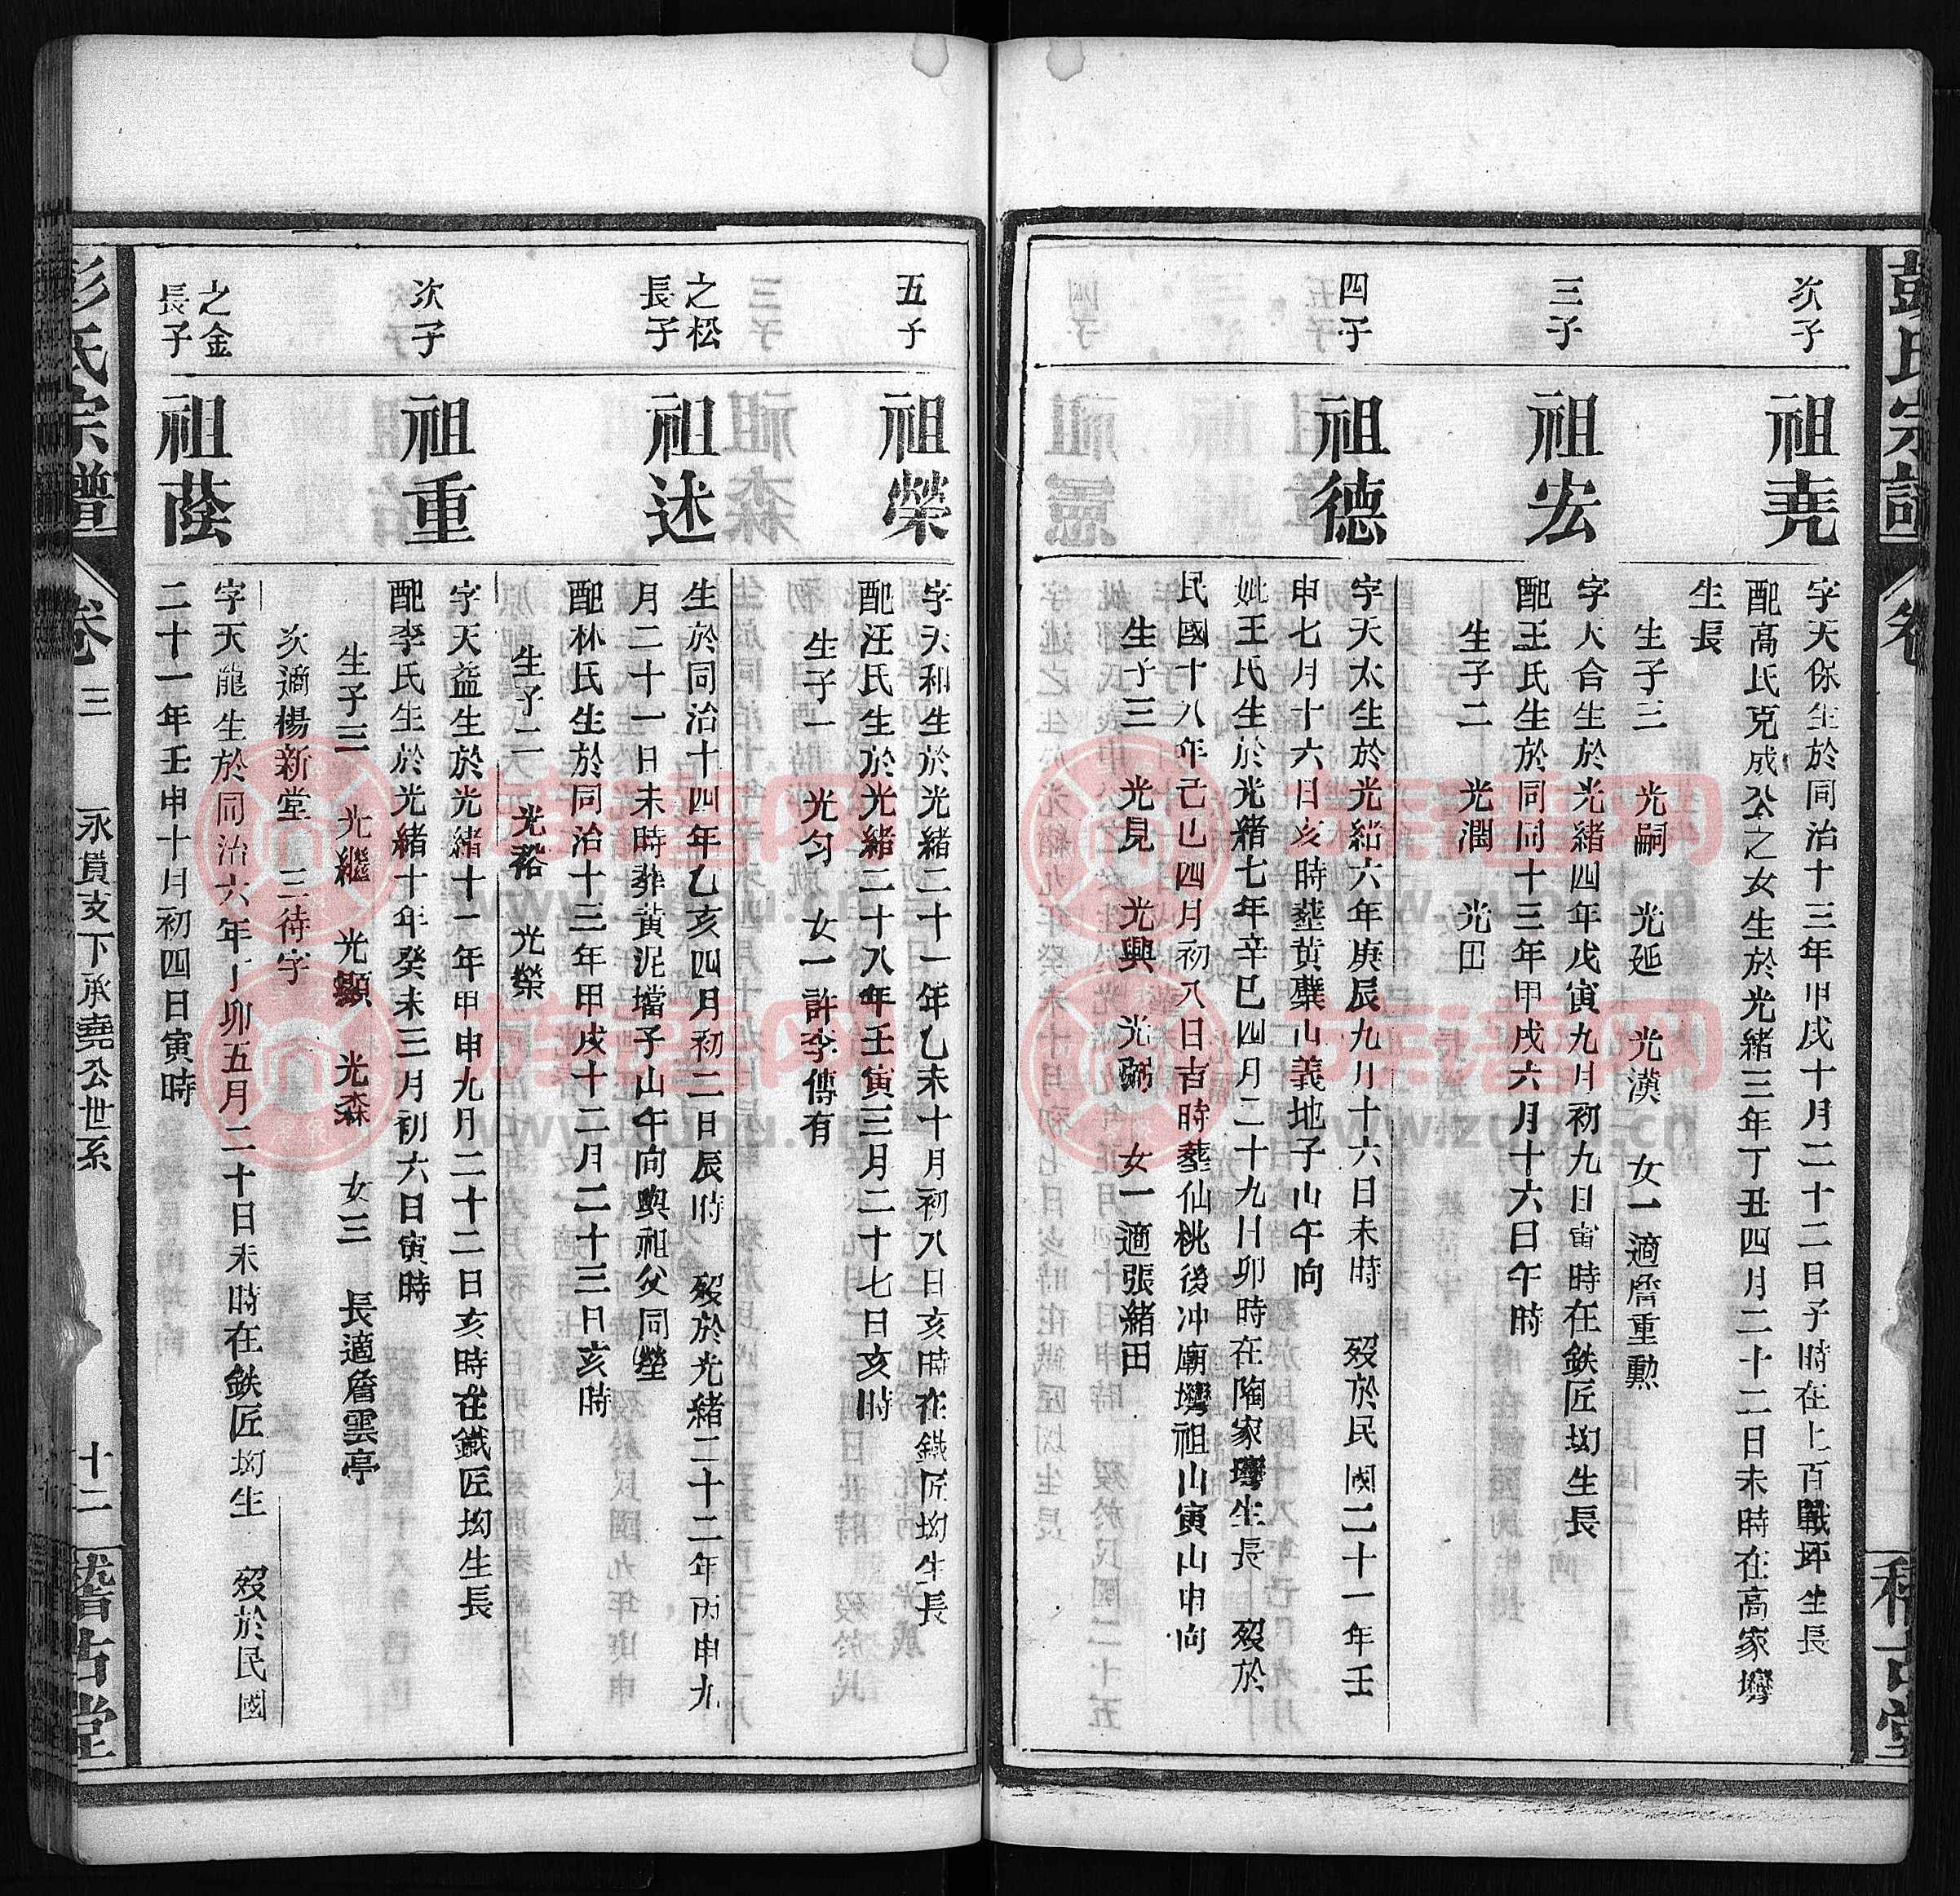 彭氏宗譜
卷
稽古堂
次子
祖堯
字天保生於同治十三年甲戌十月二十二日子時在上百戰坪生長
配高氏克成公之女生於光緒三年丁丑四月二十二日未時在高家壪
生長
生子三　光嗣　光延　光漢　女一適詹重勳
三子
祖宏
字天合生於光緒四年戊寅九月初九日寅時在鉄匠坳生長
配王氏生於同同十三年甲戌六月十六日午時
生子二　光潤　光田
四子
祖德
字天太生於光緒六年庚辰九月十六日未時　歿於民國二十一年壬
申七月十六日亥時塟黃蘗山義地子山午向
妣王氏生於光緒七年辛巳四月二十九日卯時在陶家壪生長　歿於
民國十八年己巳四月初八日吉時塟仙桃後冲廟壪祖山寅山申向
生子三　光見　光興　光弼　女一適張緒田
五子
祖榮
字天和生於光緒二十一年乙未十月初八日亥時在鐵匠坳生長
配汪氏生於光緒二十八年壬寅三月二十七日亥時
生子一　光匀　女一許李傳有
之松
長子
祖述
生於同治十四年乙亥四月初二日辰時　歿於光緒二十二年丙申九
月二十一日未時葬黃泥壋子山午向與祖父同塋
配林氏生於同治十三年甲戌十二月二十三日亥時
生子二　光裕　光榮
次子
祖重
字天益生於光緒十一年甲申九月二十二日亥時在鐵匠坳生長
配李氏生於光緒十年癸未三月初六日寅時
生子三　光繼　光顯　光森　女三　長適詹雲亭
次適楊新堂　三待字
之金
長子
祖蔭
字天龍生於同治六年丁卯五月二十日未時在鉄匠坳生　歿於民國
二十一年壬申十月初四日寅時
彭氏宗譜
卷三
永貫支下承堯公世系
十二
稽古堂
族譜网
www.zupu.cn
族譜网
www.zupu.cn
族譜网
www.zupu.cn
族譜网
www.zupu.cn